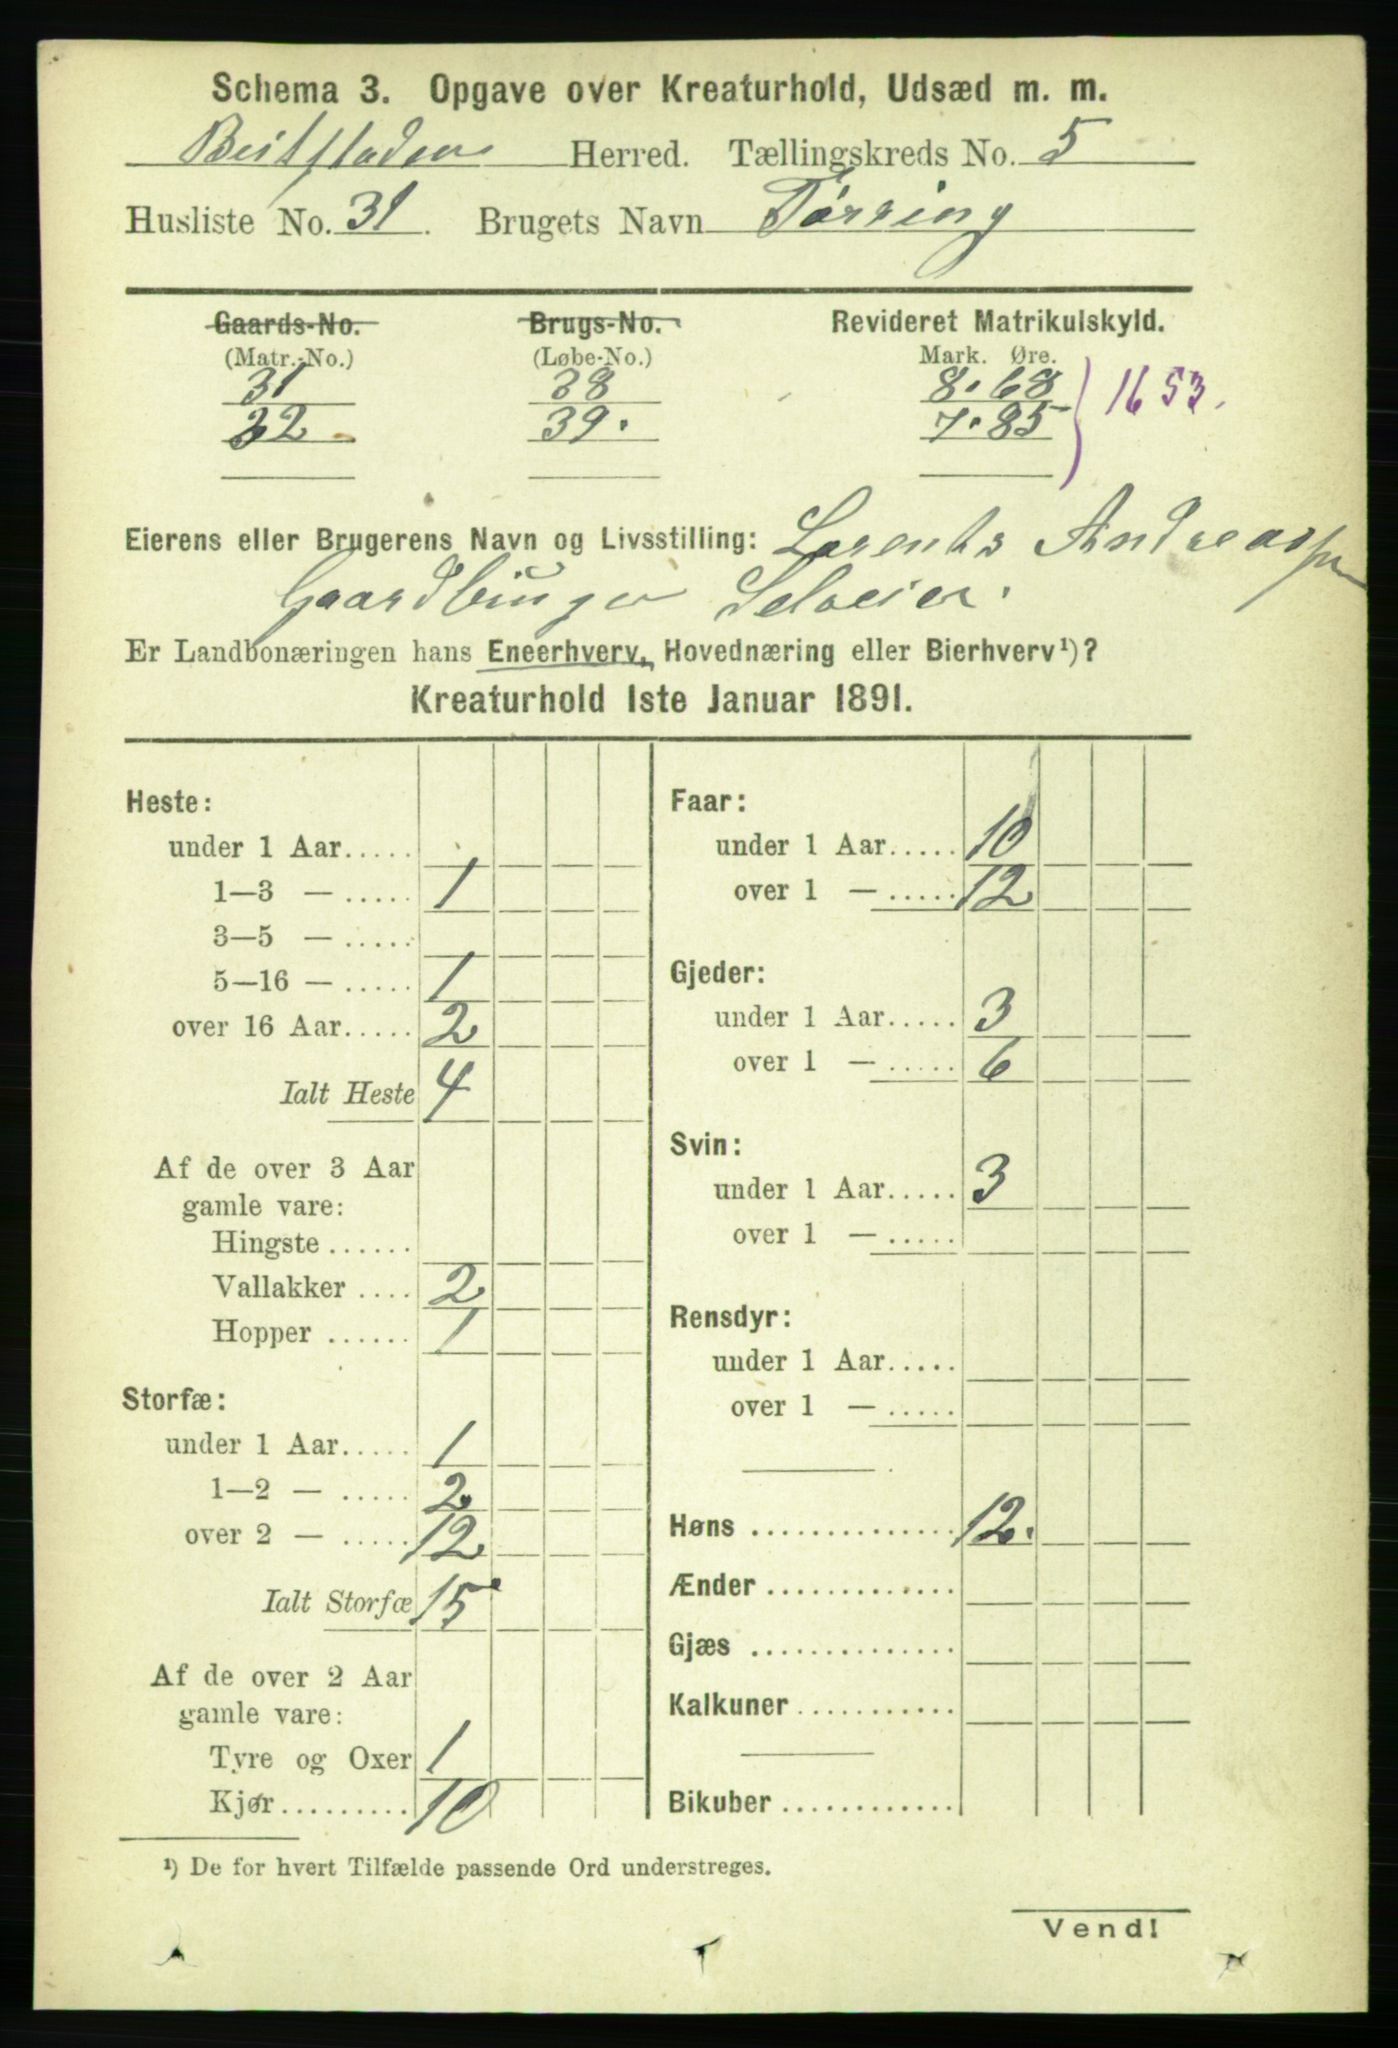 Schema 3. Opgave over Kreaturhold, Udsæd m. m.
Beitstaden Herred. Tællingskreds No. 5
Husliste No. 31. Brugets Navn Tørring
Gaards-No. Brugs-No. Revideret Matrikulskyld.
(Matr.-No.) (Løbe-No.) Mark. Øre.
31 38 8.68
32 39. 7.85 } 1653.
Eierens eller Brugerens Navn og Livsstilling: Lorents Andreassen
Gaardbruger Selveier.
Er Landbonæringen hans Eneerhverv, Hovednæring eller Bierhverv¹)?
Kreaturhold 1ste Januar 1891.
Heste:
under 1 Aar.....
1—3 — ..... 1
3—5 — .....
5—16 — ..... 1
over 16 Aar..... 2
Ialt Heste 4
Af de over 3 Aar
gamle vare:
Hingste ......
Vallakker .... 2
Hopper ...... 1
Storfæ:
under 1 Aar..... 1
1—2 — ..... 2.
over 2 — ..... 12
Ialt Storfæ 15
Af de over 2 Aar
gamle vare:
Tyre og Oxer 1
Kjør......... 10
Faar:
under 1 Aar..... 10
over 1 — ..... 12
Gjeder:
under 1 Aar..... 3
over 1 — ..... 6
Svin:
under 1 Aar..... 3
over 1 — .....
Rensdyr:
under 1 Aar.....
over 1 — .....
Høns .............. 12.
Ænder .............
Gjæs ..............
Kalkuner ...........
Bikuber ............
¹) De for hvert Tilfælde passende Ord understreges.
Vend!